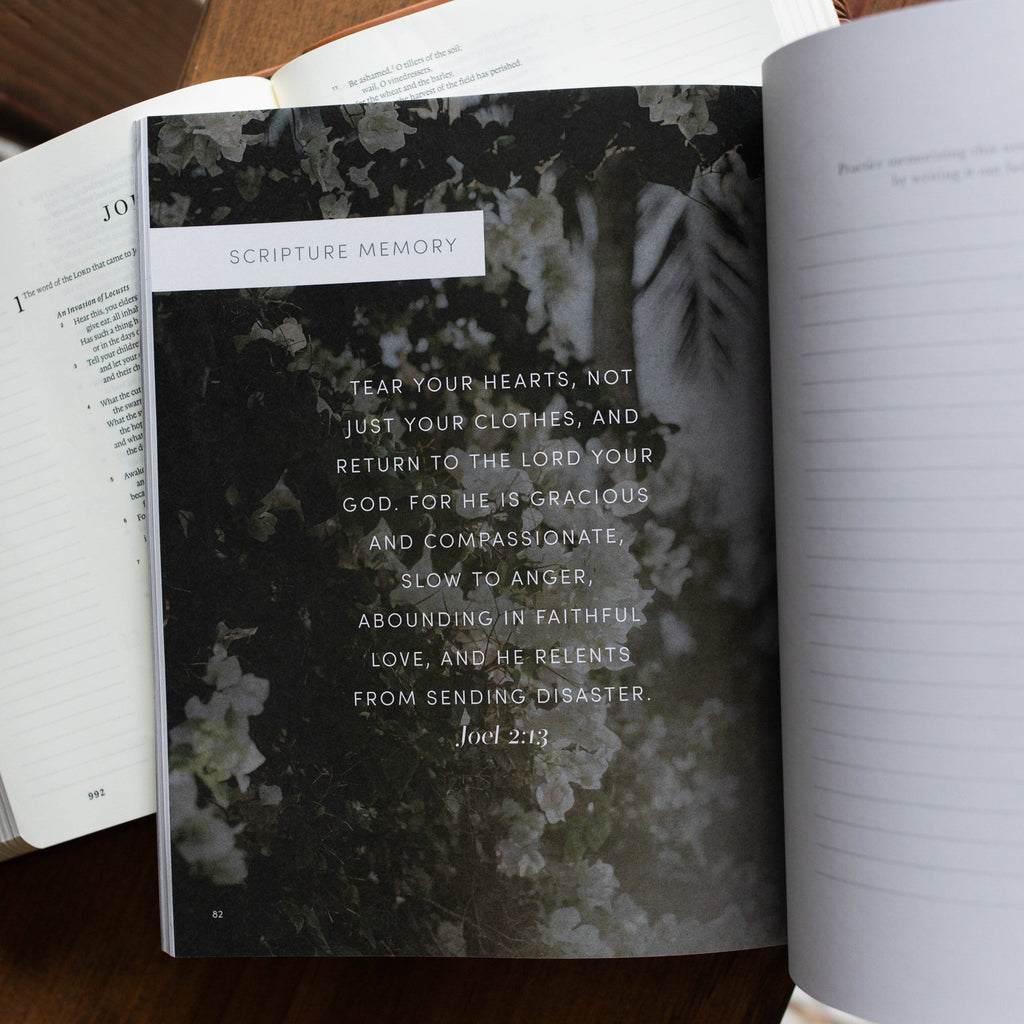 11 Be ashamed, O tillers of the soil;
wail, O vinedressers,
for the wheat and the barley,
harvest of the field has perished.
1 The word of the LORD that came to
An Invasion of Locusts
2 Hear this, you elders
give ear, all
Has such a thing
or in the days
3 Tell your
and let your
and their
4 What the
the
What the
the
and what
the
5
6
7
992
SCRIPTURE MEMORY
TEAR YOUR HEARTS, NOT
JUST YOUR CLOTHES, AND
RETURN TO THE LORD YOUR
GOD. FOR HE IS GRACIOUS
AND COMPASSIONATE,
SLOW TO ANGER,
ABOUNDING IN FAITHFUL
LOVE, AND HE RELENTS
FROM SENDING DISASTER.
Joel 2:13
82
Practice memorizing this
by writing it out